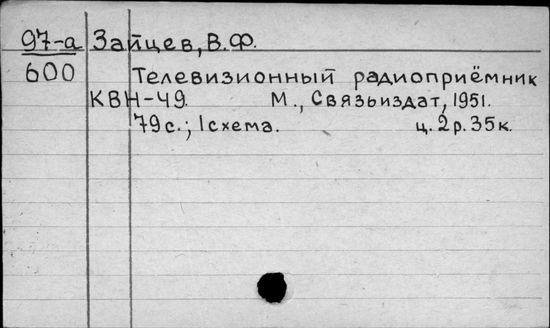 97-а Зайцев, В.Ф.
600 Телевизионный радиоприёмник
КВН-49. М., Связьиздат, 1951.
79с.; 1схема. ц. 2р. 35к.